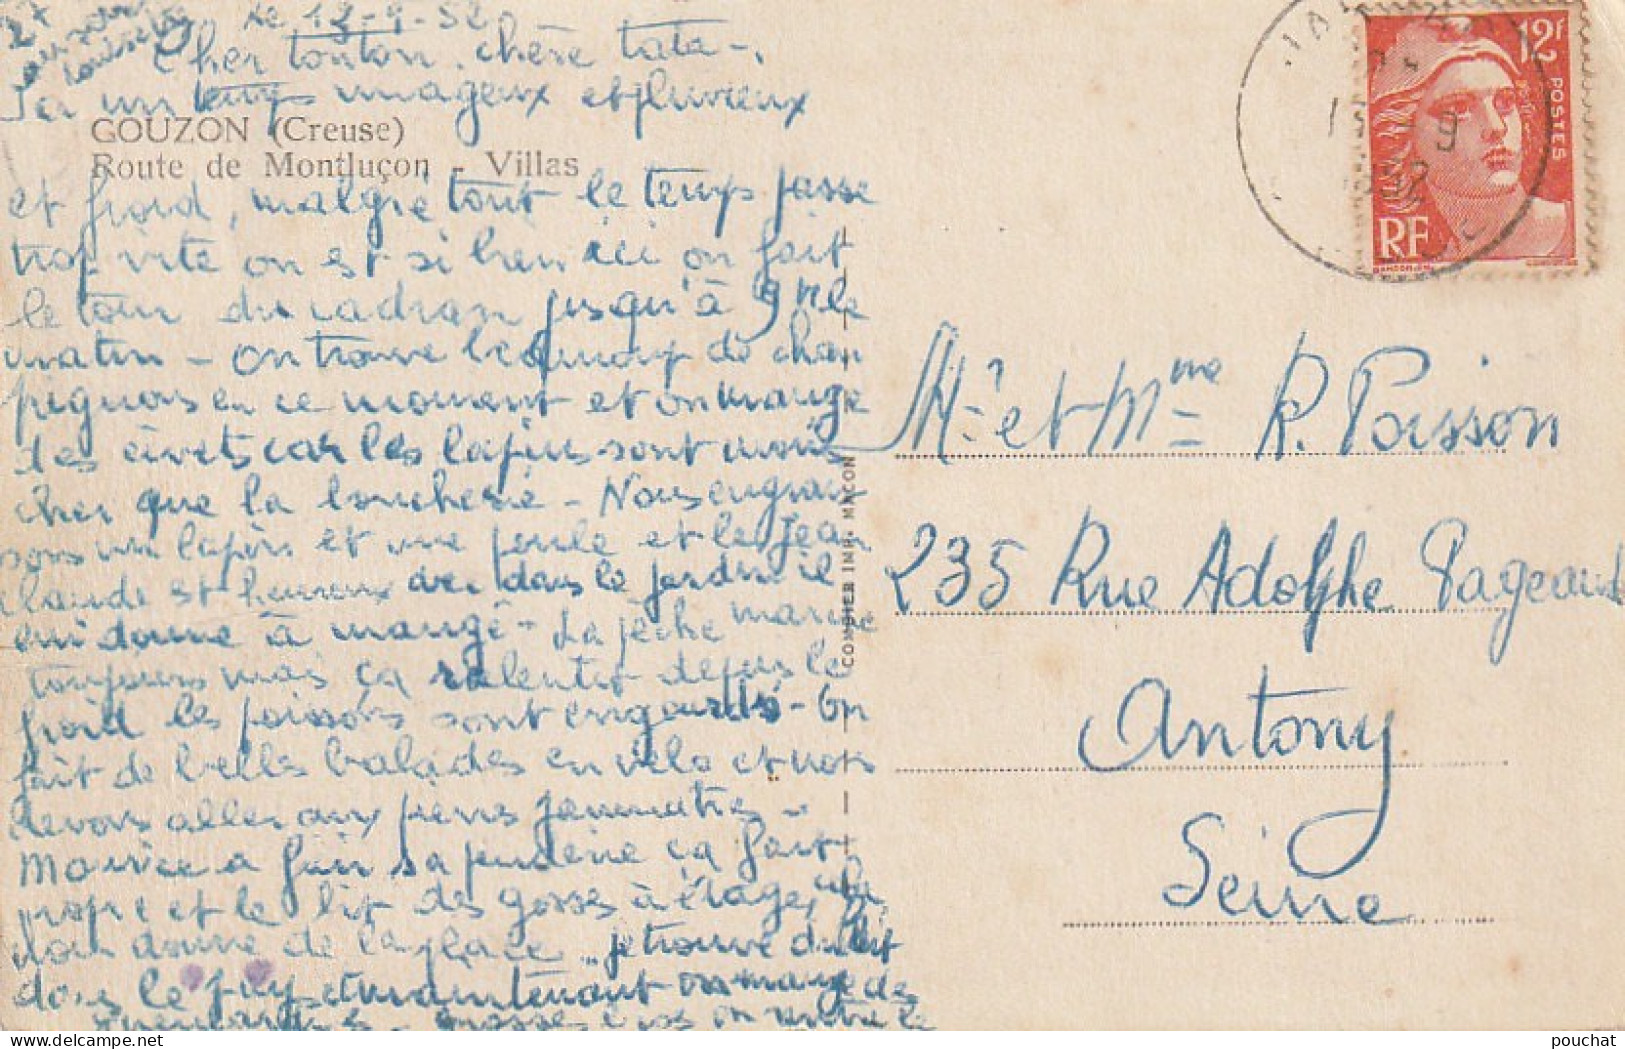 Le 13-9-52
Cher tonton, chère tata,
un temps nuageux et pluvieux
GOUZON (Creuse)
Route de Montluçon - Villas
et froid, malgré tout le temps passe
trop vite on est si bien ici on fait
le tour du cadran jusqu'à 9h le
matin - On trouve beaucoup de cham
pignons en ce moment et on mange
des civets car les lapins sont moins
cher que la boucherie - Nous engrais
sons un lapin et une poule et le Jean
Claude est heureux dans le jardin il
lui donne à mangé - La pêche marche
toujours mais ça ralentit depuis le
froid les poissons sont engourdis - On
fait de belles balades en vélo et nous
devons aller aux pierres Jaumatres -
Maurice a fait sa penderie ça fait
propre et le lit des gosses à étage,
donne de la place je trouve
dans le pays et maintenant on mange des
12f
POSTES
RF
COMBIER IMP. MACON
Mr et Mme R. Poisson
235 Rue Adolphe Pageaud
Antony
Seine
© pouchat